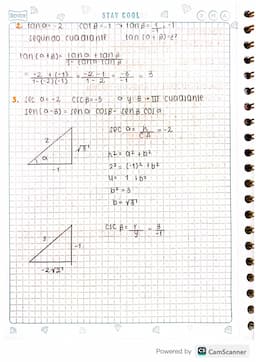 STAY COOL
2. tanα=-2 cotβ=-1 → tanβ=1/-1 = -1
segundo cuadrante tan(α+β)=?
tan(α+β)= tanα + tanβ / 1-tanα tanβ
= -2+(-1) / 1-(-2)(-1) = -2-1 / 1-2 = -3 / -1 = 3
3. sec α=-2 csc β=-3 α y β → III cuadrante
sen(α-β)= senα cosβ - senβ cosα
sec α= h/C.A =-2
2
√3
α
-1
h²= a² + b²
2²= (-1)² + b²
4= 1 + b²
b²=3
b=√3
csc β= r/y = 3/-1
3
-1
-2√2
Powered by CS CamScanner